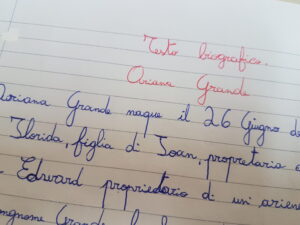 Testo biografico.
Ariana Grande
Ariana Grande naque il 26 Giugno de
Florida, figlia di Joan, propretaria
Edward proprietario di un'
Grande